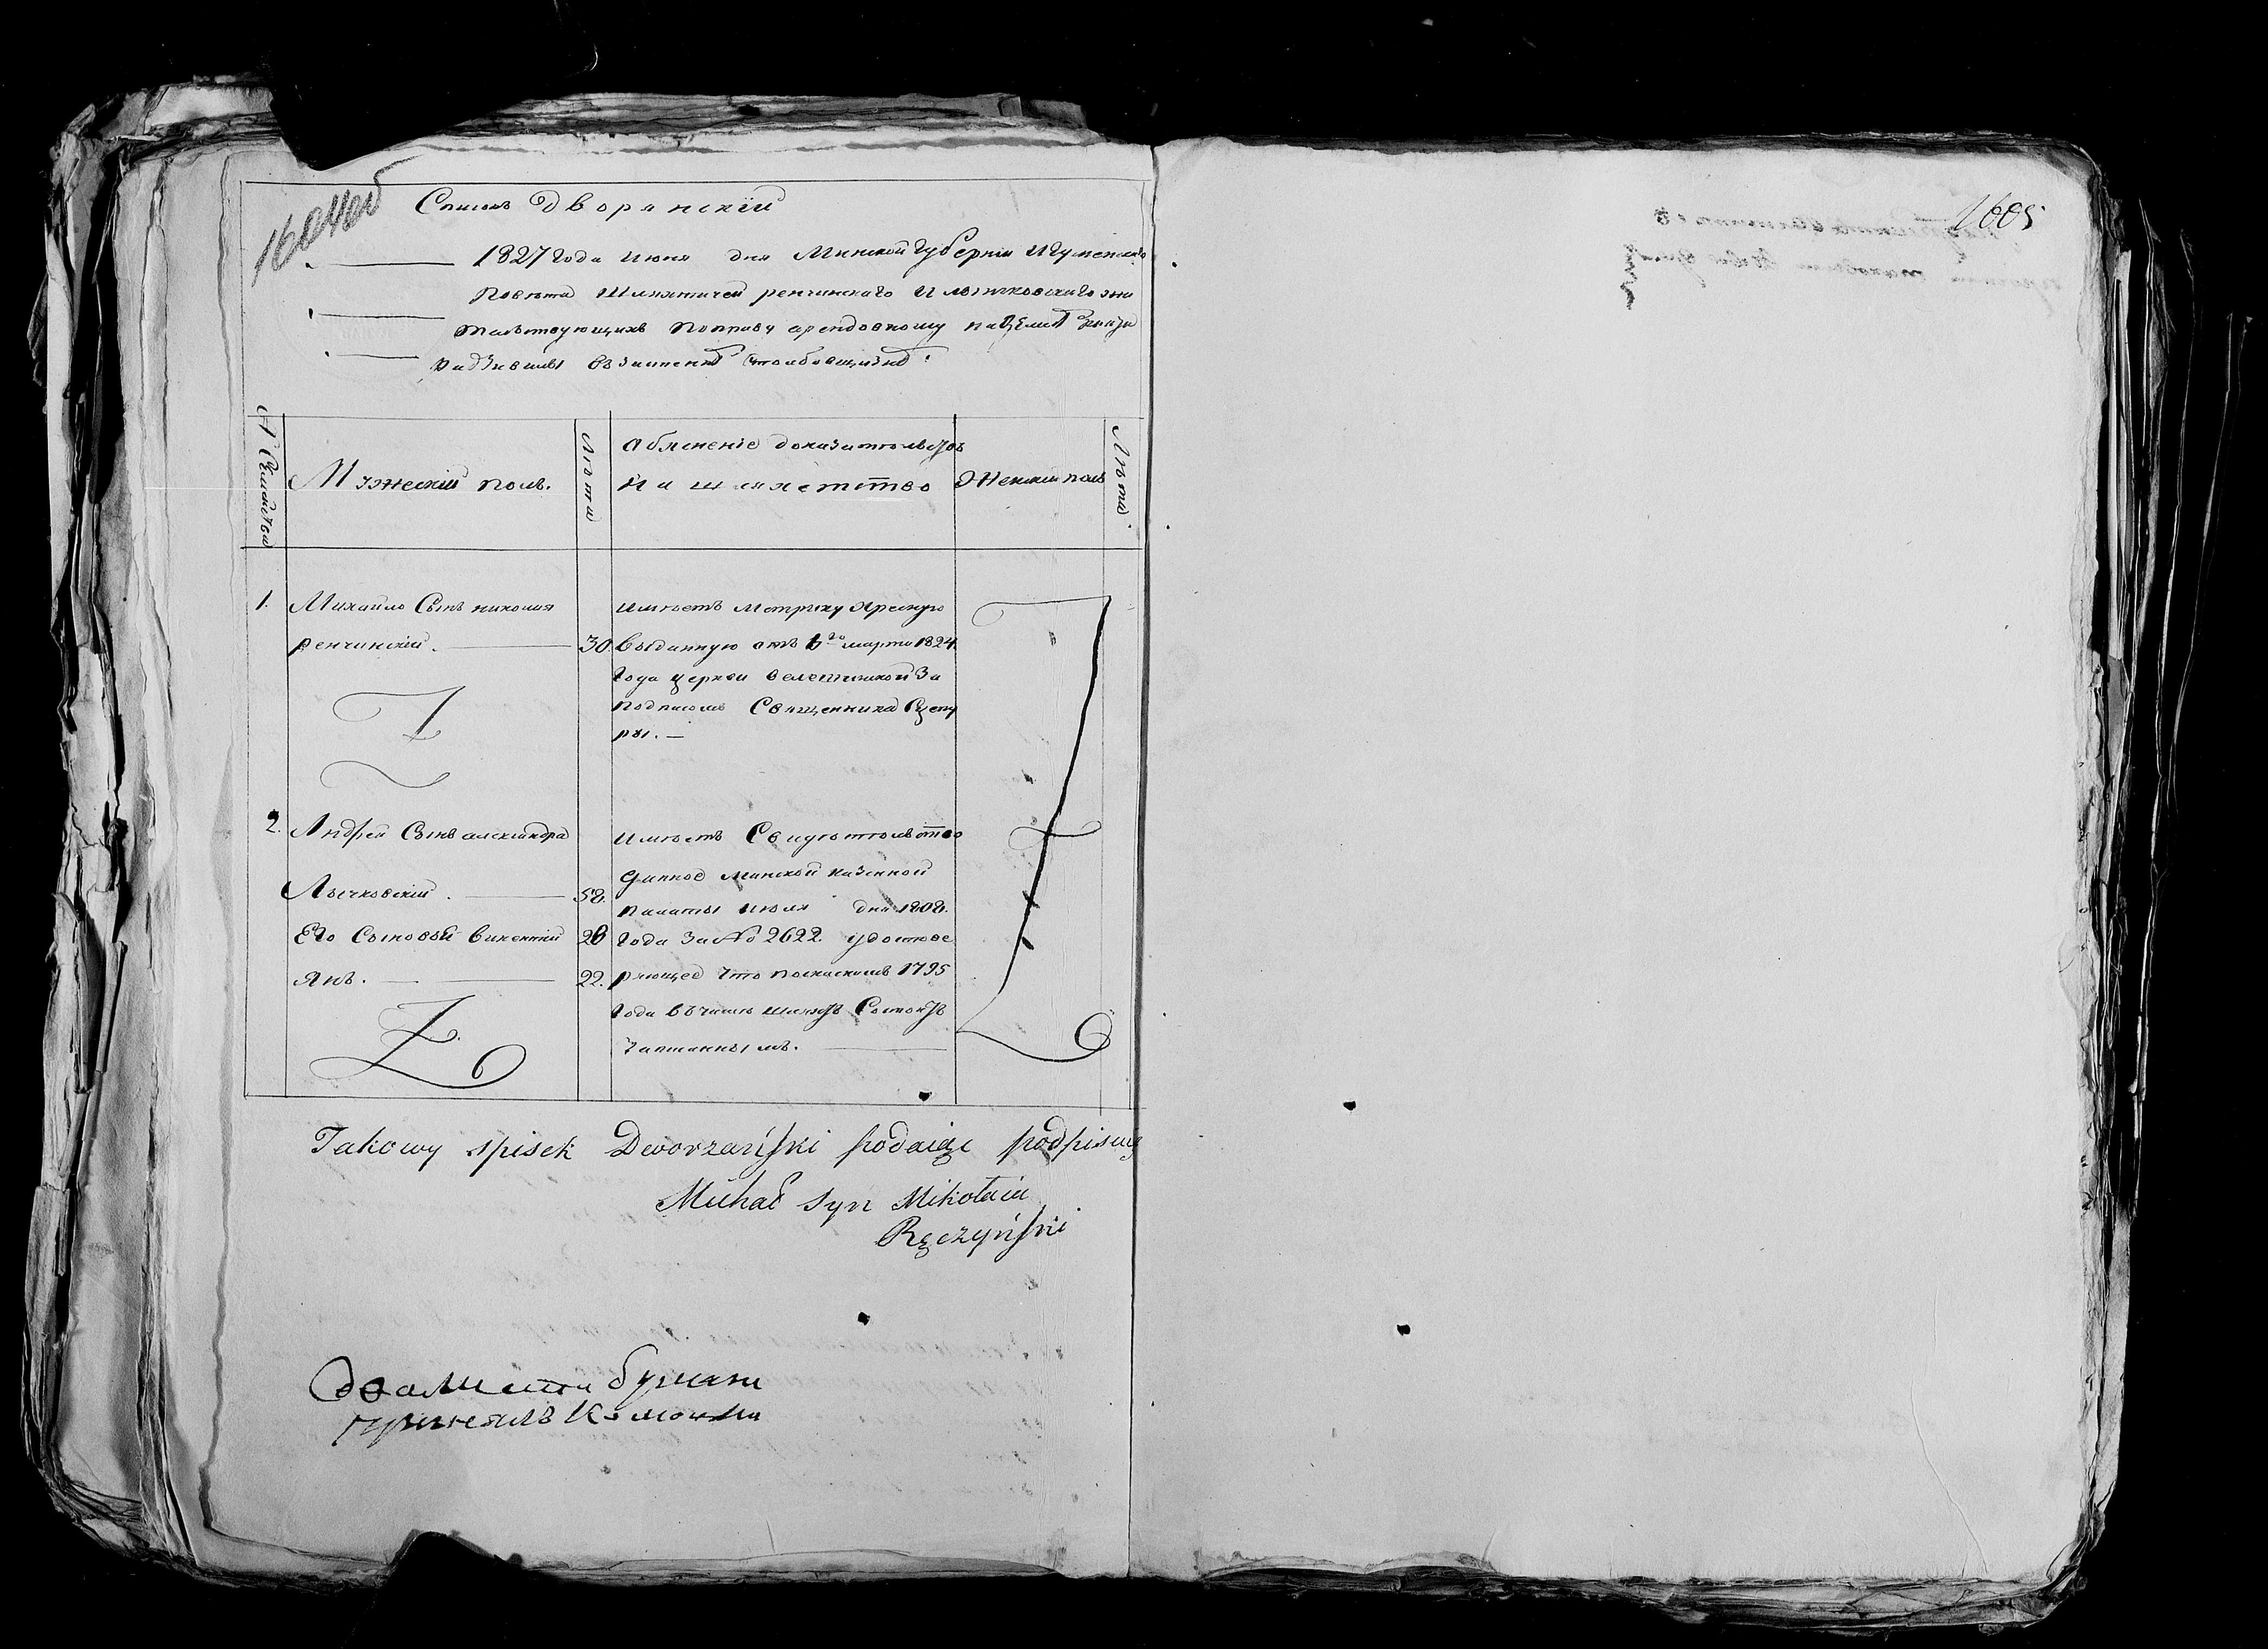 1604об
Списокъ Дворянскій
1827 Года Июня дня Минской Губерніи Игуменскаго
Повѣта Шляхтичей ренчинскаго И лычковскаго жи
тельствующихъ По праву арендовному на Землѣ Князя
радзивила въ имении Столбовщизнѣ.
№ Фамилѣи
Мужескій полъ.
Лѣта
Абяснение доказателствъ
На шляхетство
Женскій полъ
Лѣта
1. Михайло Сынъ николая
ренчинскій. 30
имѣетъ Метрику Хрестную
выданную отъ 1го марта 1824
Года церкви
подписомъ Священника
ры.
2. Андрей Сынъ александра
Лычковскій. 58.
Его Сыновья Викентий 28
Янъ. 22.
имѣетъ Свидѣтелство
данное минской казенной
палаты июля дня 1808.
Года За No 2622. удостове
ряющее что по скаскамъ 1795
Года въ числѣ шляхты Состоятъ
Takowy spisek Dworzański podaiąc podpisuię
Michał Syn Mikołaia
Ręczyński
1605